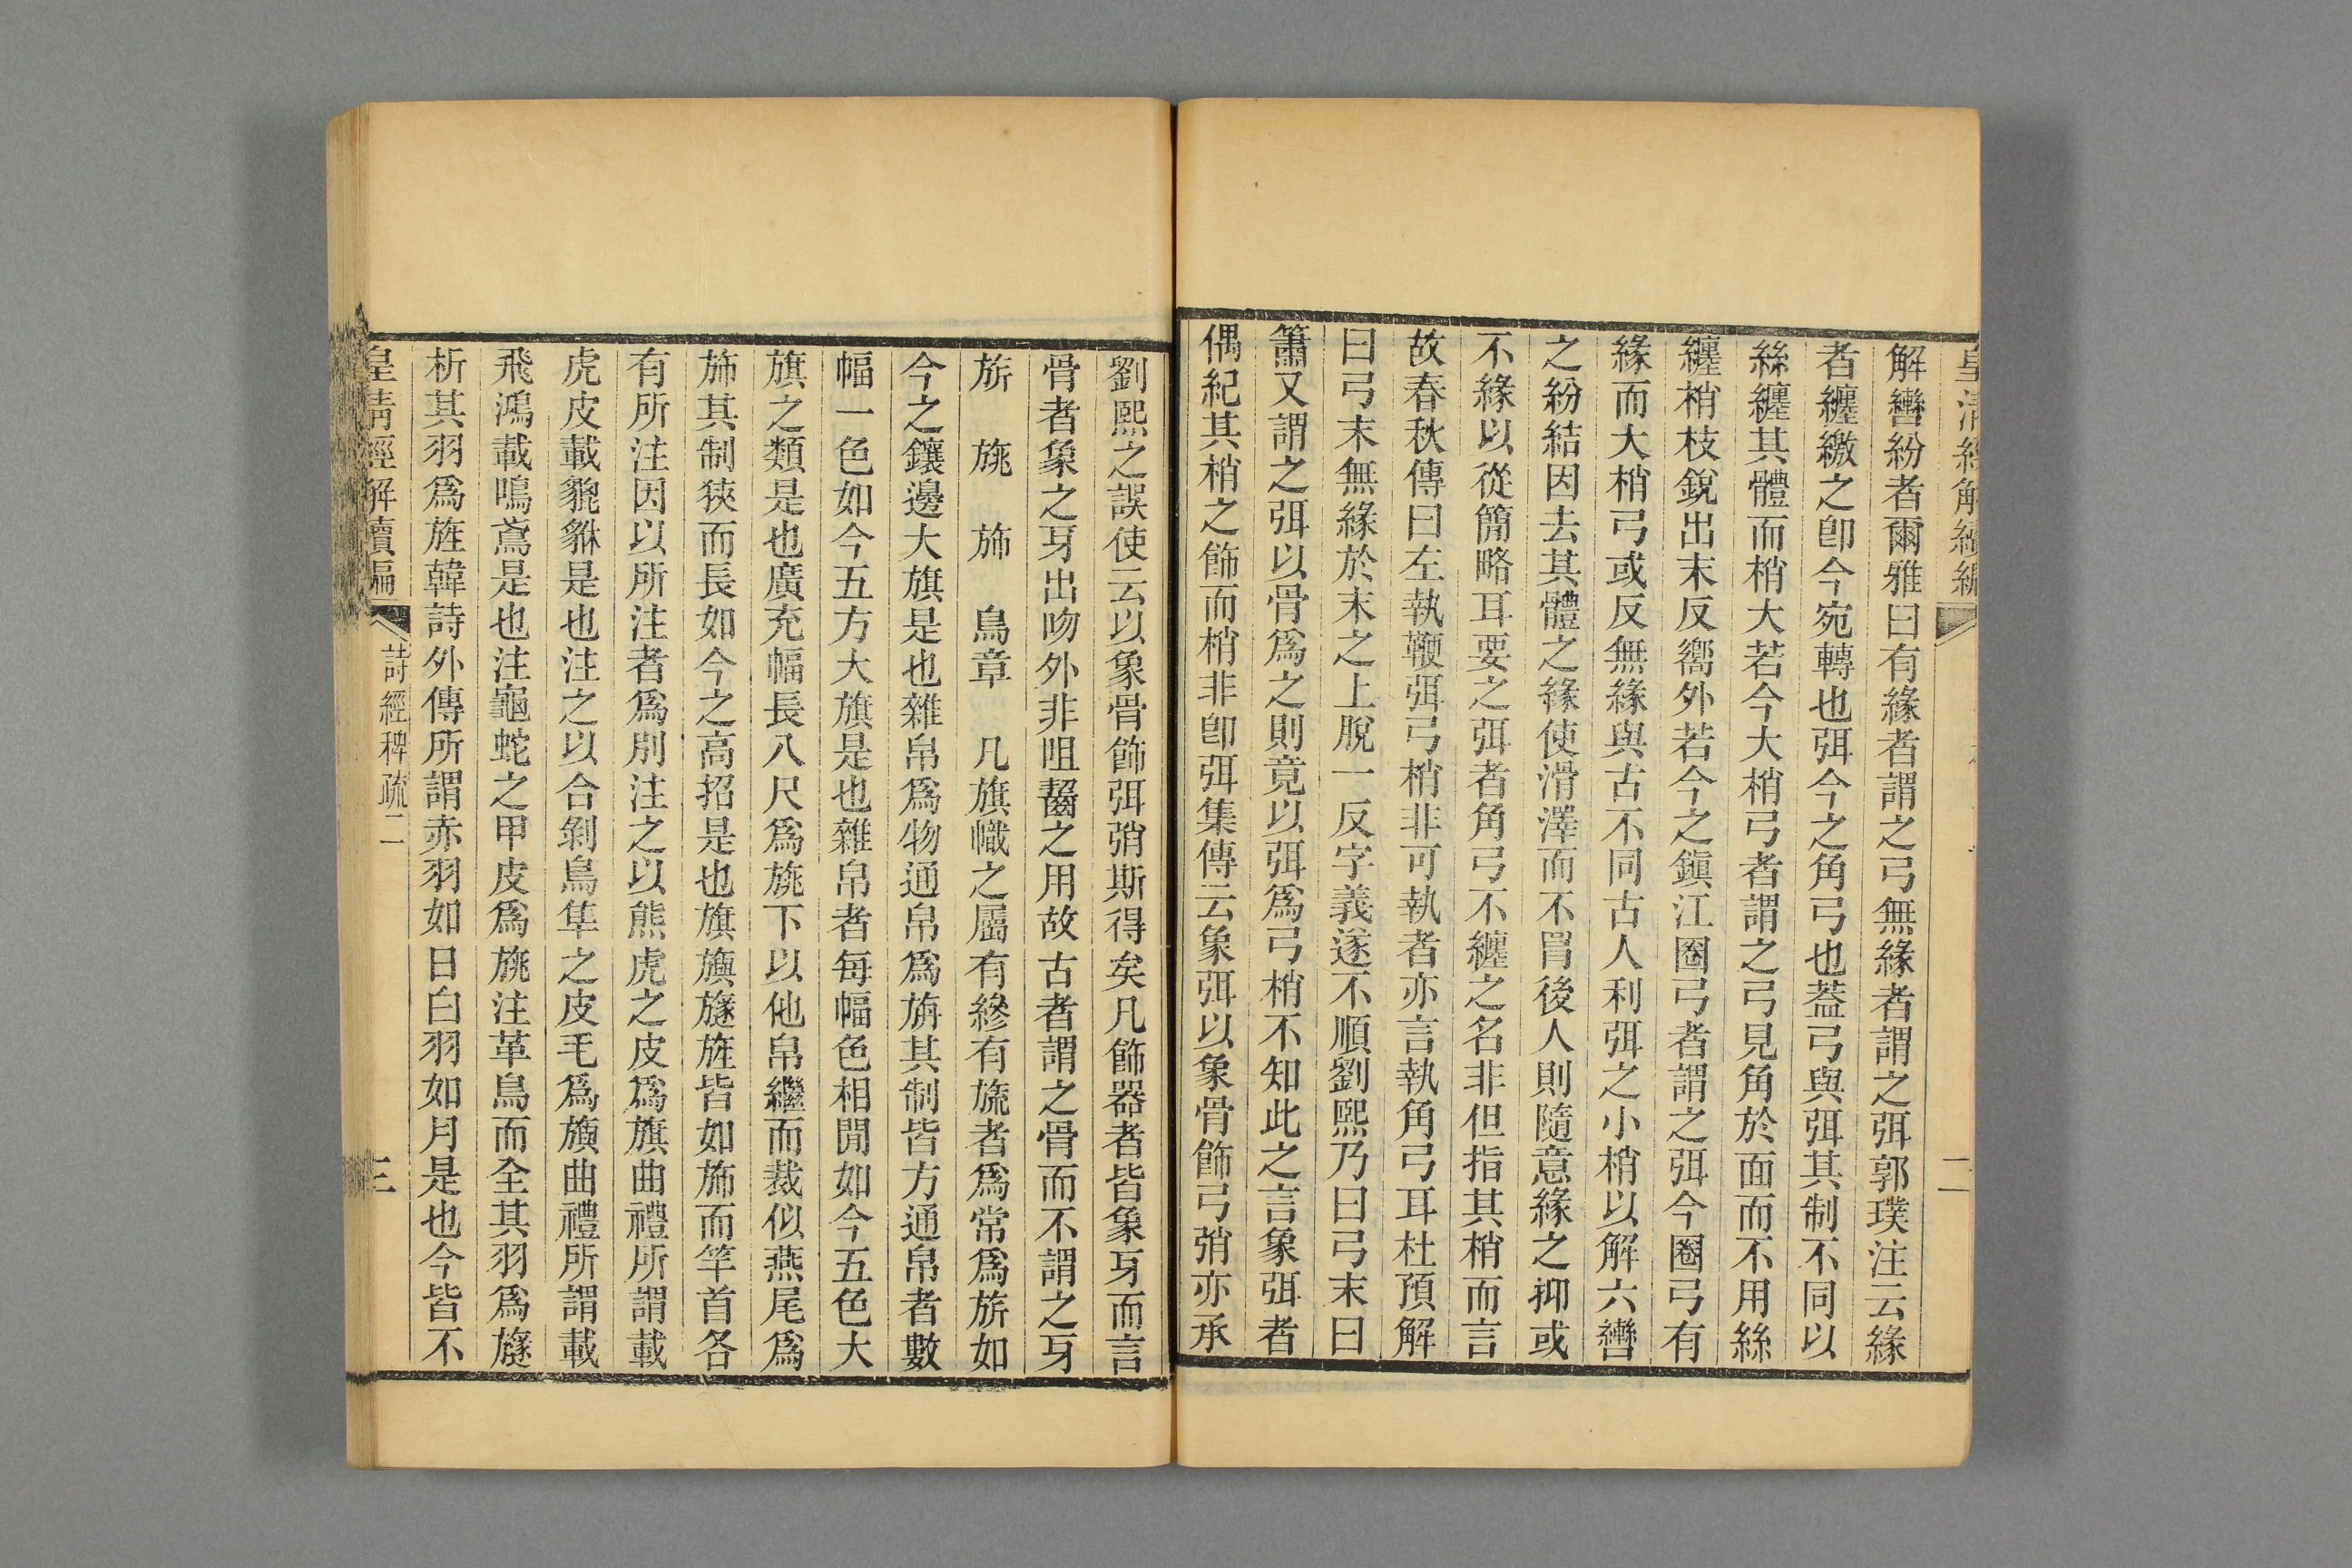 皇清經解續編
二
解轡紛者爾雅曰有緣者謂之弓無緣者謂之弭郭璞注云緣
者纏繳之卽今宛轉也弭今之角弓也葢弓與弭其制不同以
絲纏其體而梢大若今大梢弓者謂之弓見角於面而不用絲
纏梢枝銳出末反嚮外若今之鎭江圈弓者謂之弭今圈弓有
緣而大梢弓或反無緣與古不同古人利弭之小梢以解六轡
之紛結因去其體之緣使滑澤而不罥後人則隨意緣之抑或
不緣以從簡略耳要之弭者角弓不纏之名非但指其梢而言
故春秋傳曰左執鞭弭弓梢非可執者亦言執角弓耳杜預解
曰弓末無緣於末之上脫一反字義遂不順劉熙乃曰弓末曰
簫又謂之弭以骨爲之則竟以弭爲弓梢不知此之言象弭者
偶紀其梢之飾而梢非卽弭集傳云象弭以象骨飾弓弰亦承
劉熙之誤使云以象骨飾弭弰斯得矣凡飾器者皆象牙而言
骨者象之牙出吻外非咀齧之用故古者謂之骨而不謂之牙
旂 旐 旆 鳥章 凡旗幟之屬有縿有旒者爲常爲旂如
今之鑲邊大旗是也雜帛爲物通帛爲旃其制皆方通帛者數
幅一色如今五方大旗是也雜帛者每幅色相閒如今五色大
旗之類是也廣充幅長八尺爲旐下以他帛繼而裁似燕尾爲
旆其制狹而長如今之高招是也旗旟旞旌皆如旆而竿首各
有所注因以所注者爲別注之以熊虎之皮爲旗曲禮所謂載
虎皮載貔貅是也注之以合剝鳥隼之皮毛爲旟曲禮所謂載
飛鴻載鳴鳶是也注龜蛇之甲皮爲旐注革鳥而全其羽爲旞
析其羽爲旌韓詩外傳所謂赤羽如日白羽如月是也今皆不
皇清經解續編
詩經稗疏二
三